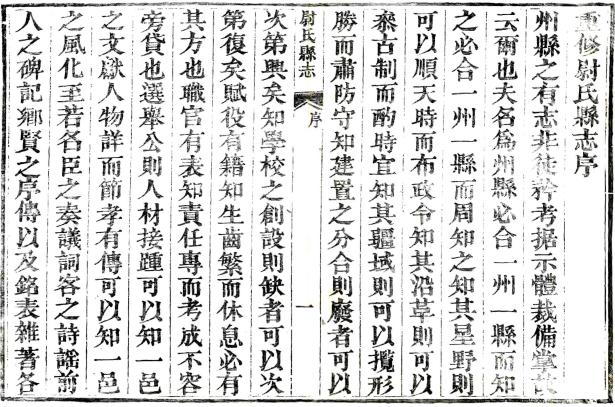 重修尉氏縣志序
州縣之有志非徒矜考据示體裁備掌故
云爾也夫名爲州縣必合一州一縣而知
之必合一州一縣而周知之知其星野則
可以順天時而布政令知其沿革則可以
叅古制而酌時宜知其疆域則可以攬形
勝而肅防守知建置之分合則廢者可以
尉氏縣志 序 一
次第興矣知學校之創設則缺者可以次
第復矣賦役有籍知生齒繁而休息必有
其方也職官有表知責任專而考成不容
旁貸也選舉公則人材接踵可以知一邑
之文獻人物詳而節孝有傳可以知一邑
之風化至若各臣之奏議詞客之詩謠前
人之碑記鄉賢之序傳以及銘表雜著各